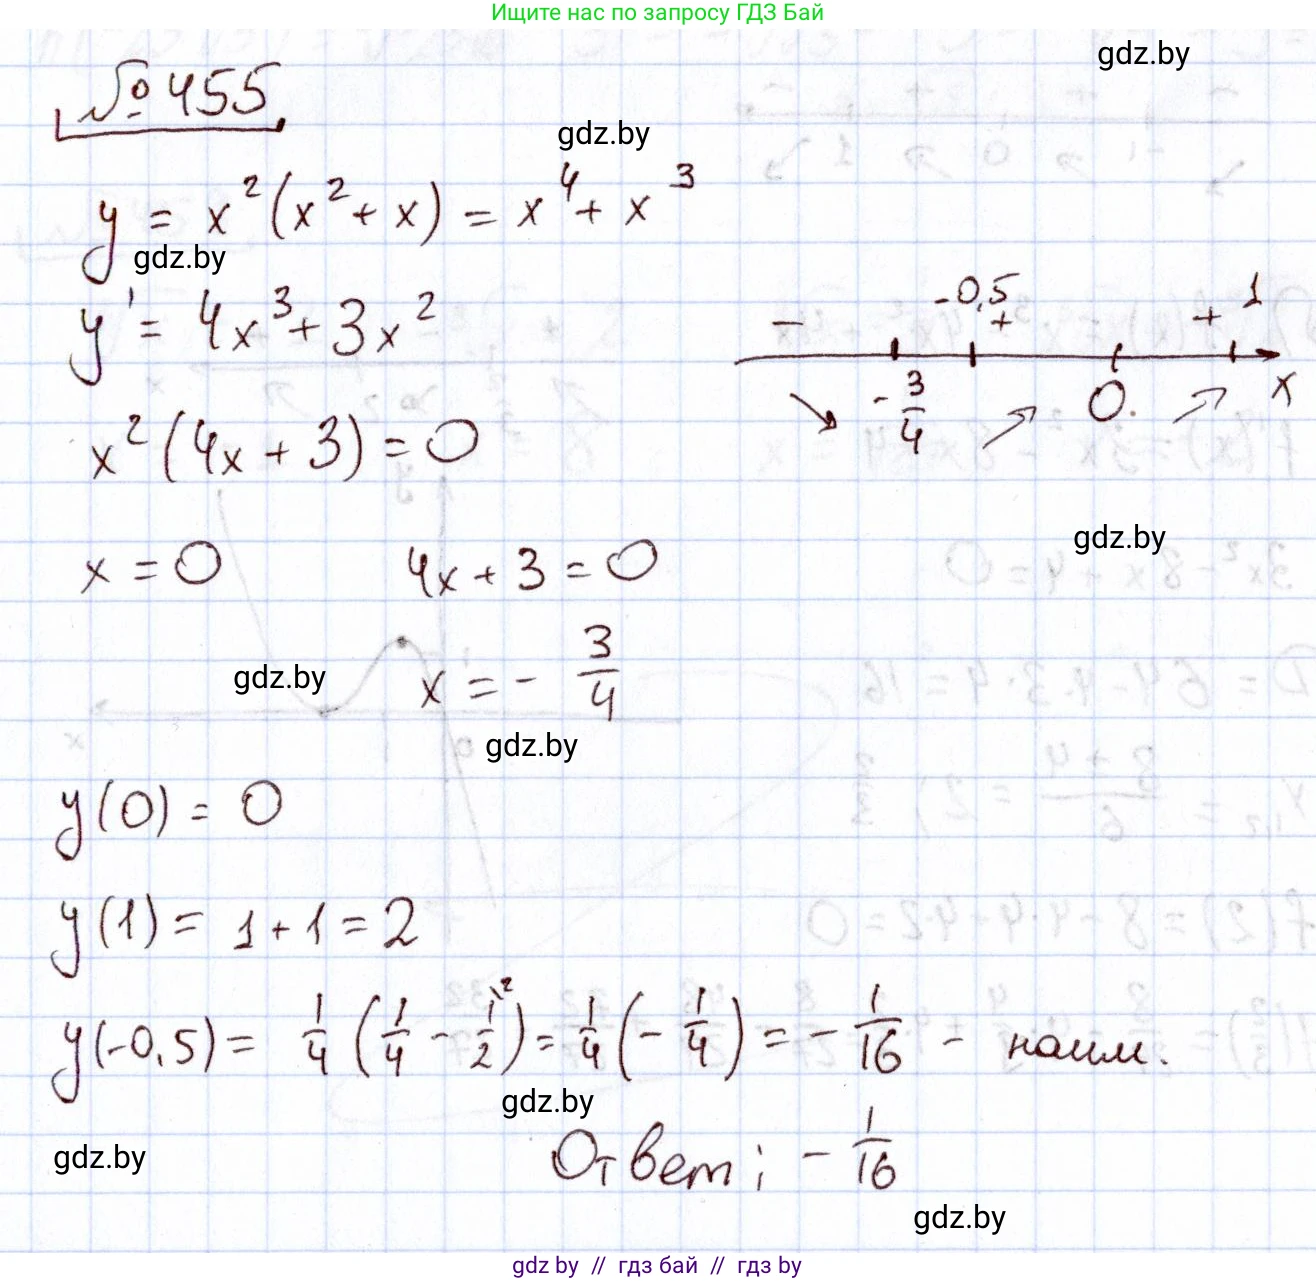 Ищите нас по запросу ГДЗ Бай
gdz.by
№ 455
gdz.by
y = x²(x² + x) = x⁴ + x³
gdz.by
y' = 4x³ + 3x²
x²(4x + 3) = 0
-0,5 1
- + +
-3/4 0 x
gdz.by
x = 0 4x + 3 = 0
gdz.by
x = - 3/4
gdz.by
y(0) = 0
y(1) = 1 + 1 = 2
y(-0,5) = 1/4 (1/4 - 1/2^\2) = 1/4 (- 1/4) = - 1/16 - наим.
gdz.by
gdz.by
Ответ: - 1/16
gdz.by
gdz by // гдз бай // гдз by